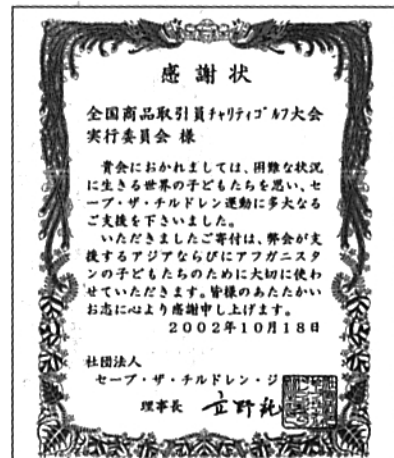 感謝状
全国商品取引員チャリティゴルフ大会
実行委員会 様
貴会におかれましては、困難な状況
に生きる世界の子どもたちを思い、セ
ーブ・ザ・チルドレン運動に多大なる
ご支援を下さいました。
いただきましたご寄付は、弊会が支
援するアジアならびにアフガニスタ
ンの子どもたちのために大切に使わ
せていただきます。皆様のあたたかい
お志に心より感謝申し上げます。
2002年10月18日
社団法人
セーブ・ザ・チルドレン・ジ
理事長 立野純